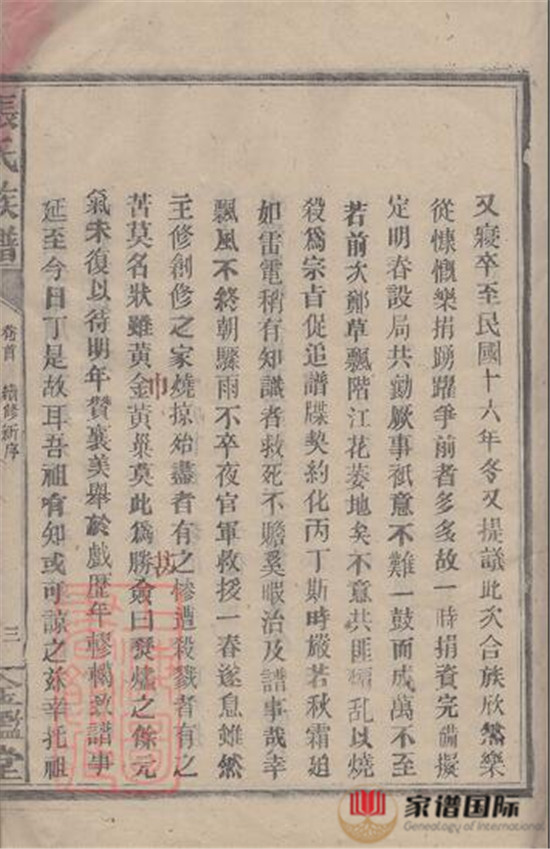 又寢卒至民國十六年冬又提議此次合族欣然樂
從慷慨樂捐踴躍爭前者多多故一時捐資完備擬
定明春設局共勷厥事祇意不難一鼓而成萬不至
若前次鄭草飄階江花萎地矣不意共匪禍乱以燒
殺為宗旨促追譜牒契約化丙丁斯時嚴若秋霜迫
如雷電稍有知識者救死不贍奚暇治及譜事哉幸
飄風不終朝驟雨不卒夜官軍救援一春遂息雖然
主修創修之家燒掠殆盡者有之慘遭殺戮者有之
苦莫名狀雖黃金黃巢莫此為勝僉曰焚燼之餘元
氣未復以待明年贊襄美舉於戲歷年轇轕致譜事
延至今日丁是故耳吾祖有知或可諒之茲幸托祖
張氏族譜
卷首 續修新序
三
金鑑堂
家谱国际
Genealogy of International